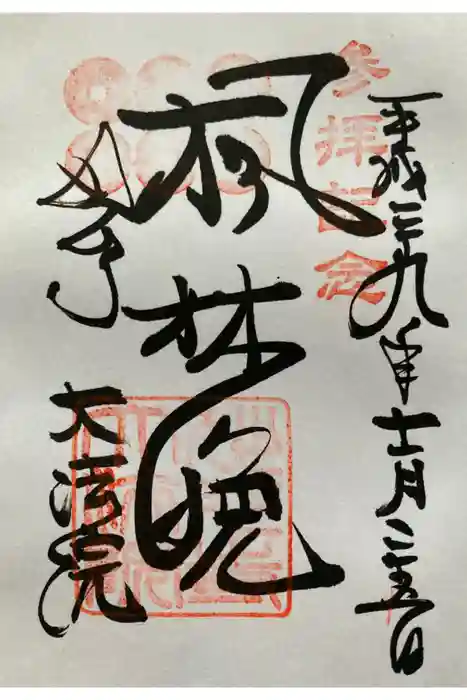 参拝記念
平成二十九年十一月二十五日
楓林晩
大法院